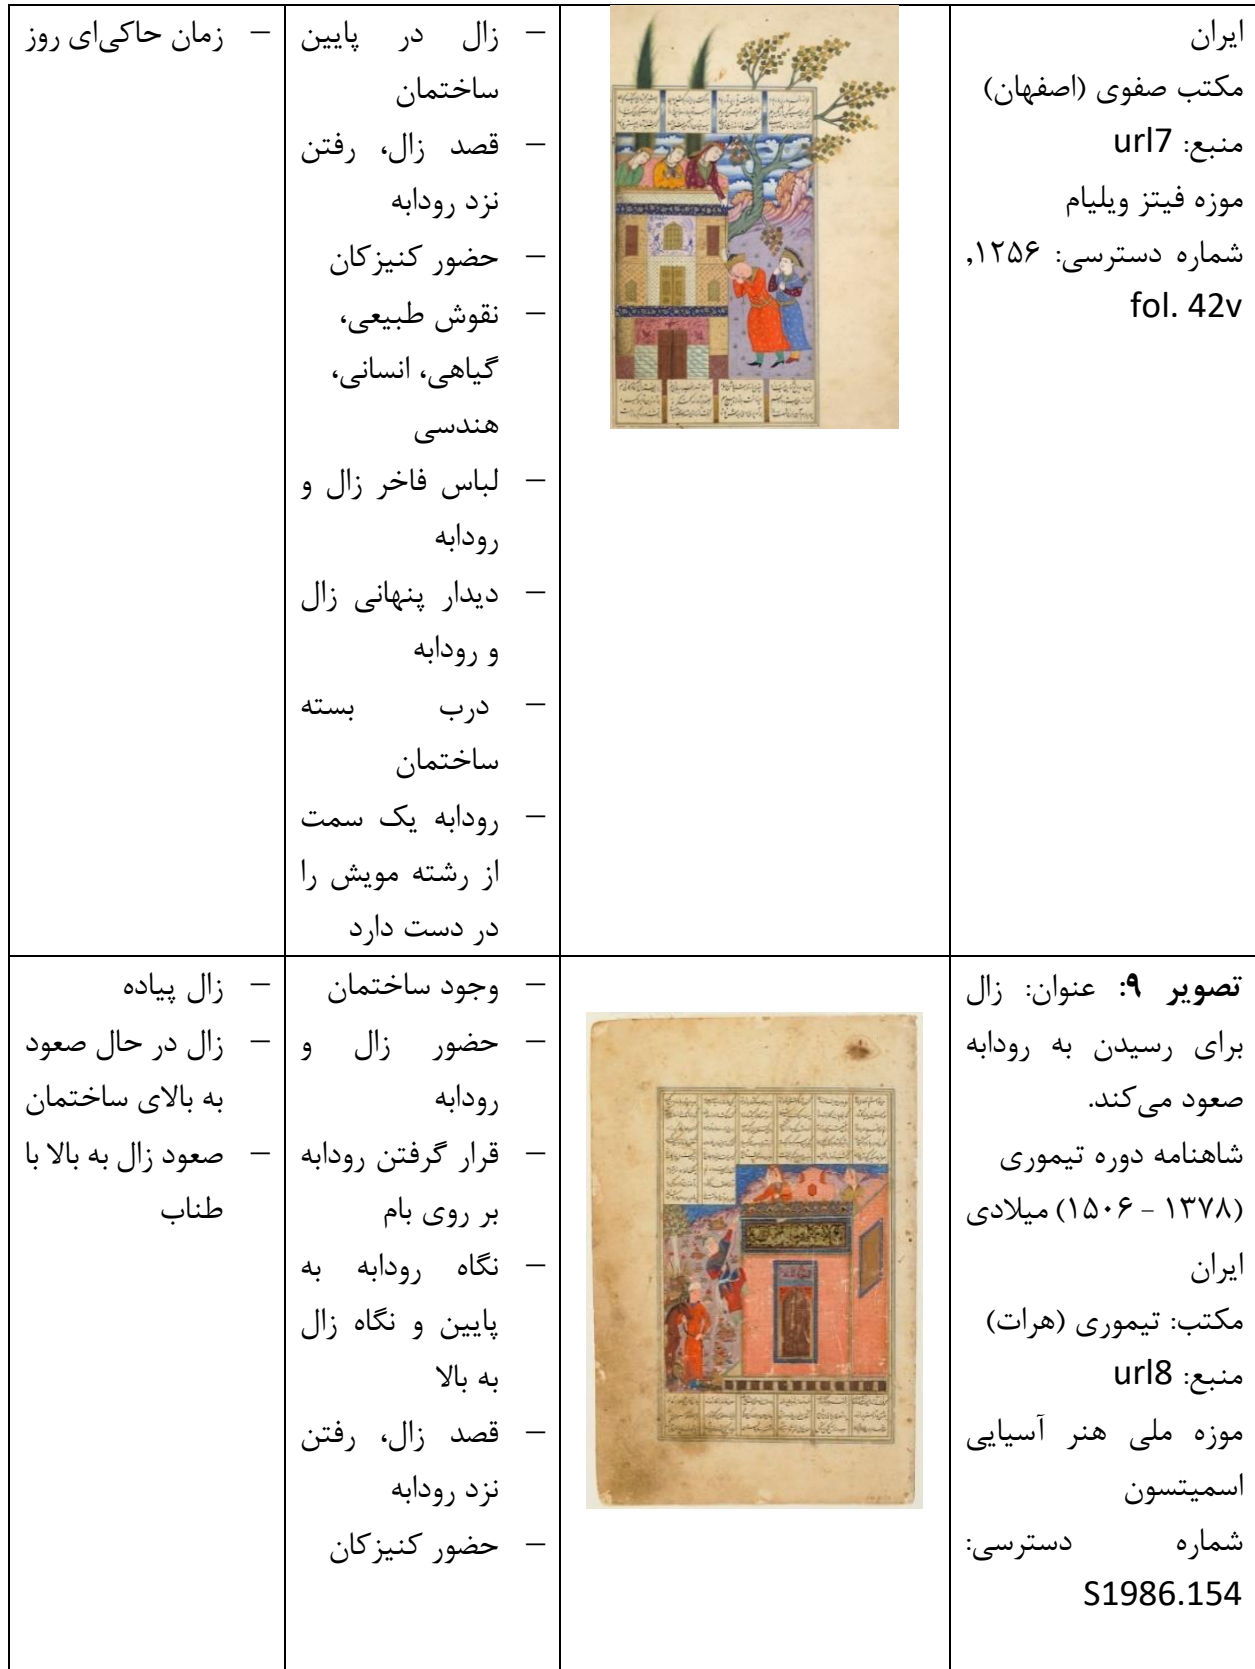 ایران
مکتب صفوی (اصفهان)
منبع: url7
موزه فیتز ویلیام
شماره دسترسی: ۱۲۵۶,
fol. 42v
– زال در پایین
ساختمان
– قصد زال، رفتن
نزد رودابه
– حضور کنیزکان
– نقوش طبیعی،
گیاهی، انسانی،
هندسی
– لباس فاخر زال و
رودابه
– دیدار پنهانی زال
و رودابه
– درب بسته
ساختمان
– رودابه یک سمت
از رشته مویش را
در دست دارد
– زمان حاکی‌ای روز
تصویر ۹: عنوان: زال
برای رسیدن به رودابه
صعود می‌کند.
شاهنامه دوره تیموری
(۱۳۷۸ - ۱۵۰۶) میلادی
ایران
مکتب: تیموری (هرات)
منبع: url8
موزه ملی هنر آسیایی
اسمیتسون
شماره دسترسی:
S1986.154
– وجود ساختمان
– حضور زال و
رودابه
– قرار گرفتن رودابه
بر روی بام
– نگاه رودابه به
پایین و نگاه زال
به بالا
– قصد زال، رفتن
نزد رودابه
– حضور کنیزکان
– زال پیاده
– زال در حال صعود
به بالای ساختمان
– صعود زال به بالا با
طناب